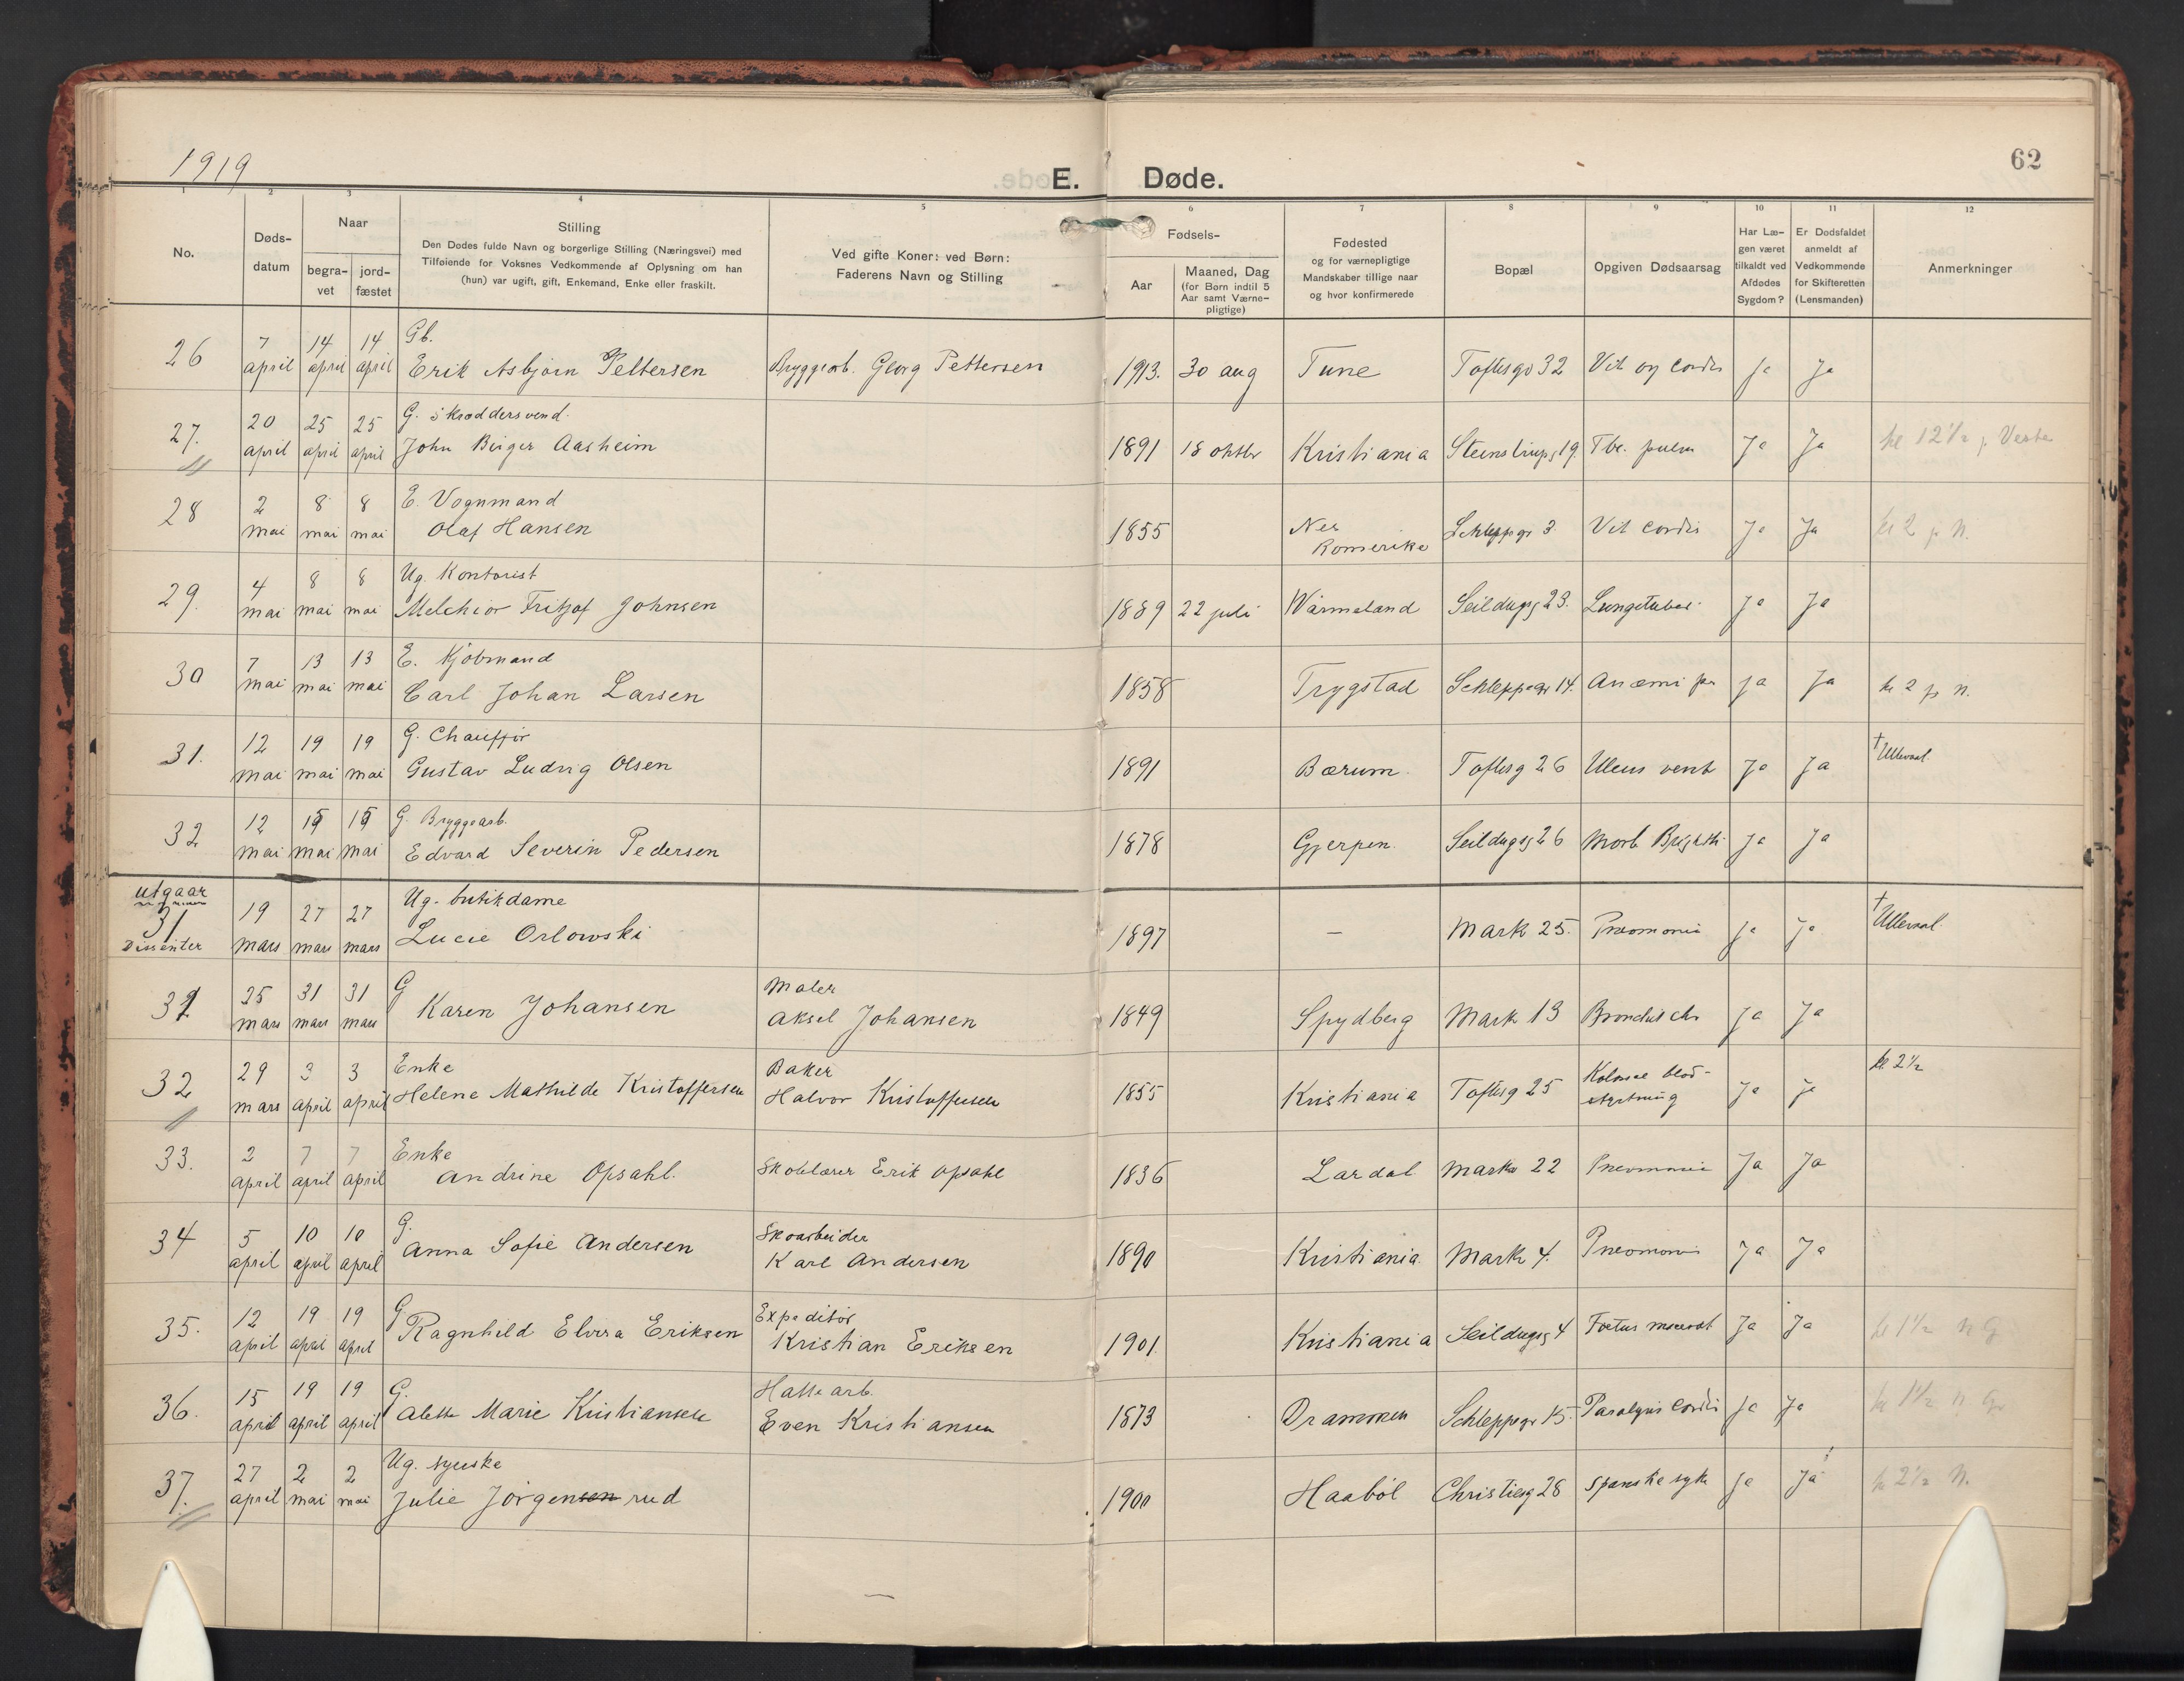 1919
62
E. Døde.
1 2 3 4 5 6 7 8 9 10 11 12
No.
Døds-datum
Naar
begra-vet
jord-fæstet
Stilling
Den Dødes fulde Navn og borgerlige Stilling (Næringsvei) med
Tilføiende for Voksnes Vedkommende af Oplysning om han
(hun) var ugift, gift, Enkemand, Enke eller fraskilt.
Ved gifte Koner: ved Børn:
Faderens Navn og Stilling
Fødsels-
Aar
Maaned, Dag
(for Børn indtil 5
Aar samt Værne-
pligtige)
Fødested
og for værnepligtige
Mandskaber tillige naar
og hvor konfirmerede
Bopæl
Opgiven Dødsaarsag
Har Læ-
gen været
tilkaldt ved
Afdødes
Sygdom?
Er Dødsfaldet
anmeldt af
Vedkommende
for Skifteretten
(Lensmanden)
Anmerkninger
26 7 april 14 april 14 april Gb.
Erik Asbjørn Pettersen Bryggearb. Georg Pettersen 1913. 30 aug Tune Toftesgt 32 Vit og cordis ja Ja
27. 20 april 25 april 25 april G. Skræddersvend.
John Birger Aasheim 1891 18 oktbr Kristiania Steenstrupsg 19. Tbc. pulm Ja Ja kl 12 1/2 p. Vestre
28 2 mai 8 mai 8 mai E. Vognmand
Olaf Hansen 1855 Nes Romerike Schleppegr 3. Vit cordis Ja Ja kl 2 p N.
29. 4 mai 8 mai 8 mai Ug. Kontorist
Melchior Fritjof Johnsen 1889 22 juli Wärmeland Seildugsg 23. Lungetuberk. Ja Ja
30 7 mai 13 mai 13 mai E. Kjøbmand
Carl Johan Larsen 1858 Trygstad Schleppegr 14. Anæmi per ja Ja kl 2 p N.
31. 12 mai 19 mai 19 mai G. Chauffør
Gustav Ludvig Olsen 1891 Bærum. Toftesg 26 Ulcus vent Ja Ja † Ullevaal.
32 12 mai 15 mai 15 mai G. Bryggearb.
Edvard Severin Pedersen 1878 Gjerpen. Seildugsg 26 Morb Brightii Ja Ja
utgaar
31
Dissenter 19 mars 27 mars 27 mars Ug. butikdame
Lucie Orlowski 1897 — Mark 25. Pneomonia Ja Ja † Ullevaal.
31 25 mars 31 mars 31 mars G
Karen Johansen Maler
Aksel Johansen 1849 Spydberg Mark 13 Bronchit chr Ja Ja
32 29 mars 3 april 3 april Enke
Helene Mathilde Kristoffersen Baker
Halvor Kristoffersen 1855 Kristiania Toftesg 25 Kolossal blod-
styrtning Ja Ja kl 2 1/2
33. 2 april 7 april 7 april Enke
Andrine Opsahl. Skolelærer Erik Opsahl 1836 Lardal Mark 22 Pneomonia Ja Ja
34 5 april 10 april 10 april G.
Anna Sofie Andersen Skoarbeider
Karl Andersen 1890 Kristiania. Mark 4. Pneomoni Ja Ja
35. 12 april 19 april 19 april G
Ragnhild Elvira Eriksen Expeditør
Kristian Eriksen 1901 Kristiania Seildugsg 4 Foetus macerat Ja Ja kl 1 1/2 N G
36. 15 april 19 april 19 april G.
Alette Marie Kristiansen Hattearb.
Even Kristiansen 1873 Drammen Schleppegr 15. Paralysis cordis Ja Ja kl 1 1/2 N. Gr
37. 27 april 2 mai 2 mai Ug. syerske
Julie Jørgensen rud 1900 Haabøl Christiesg 28 Spanske syke Ja Ja kl 2 1/2 N.